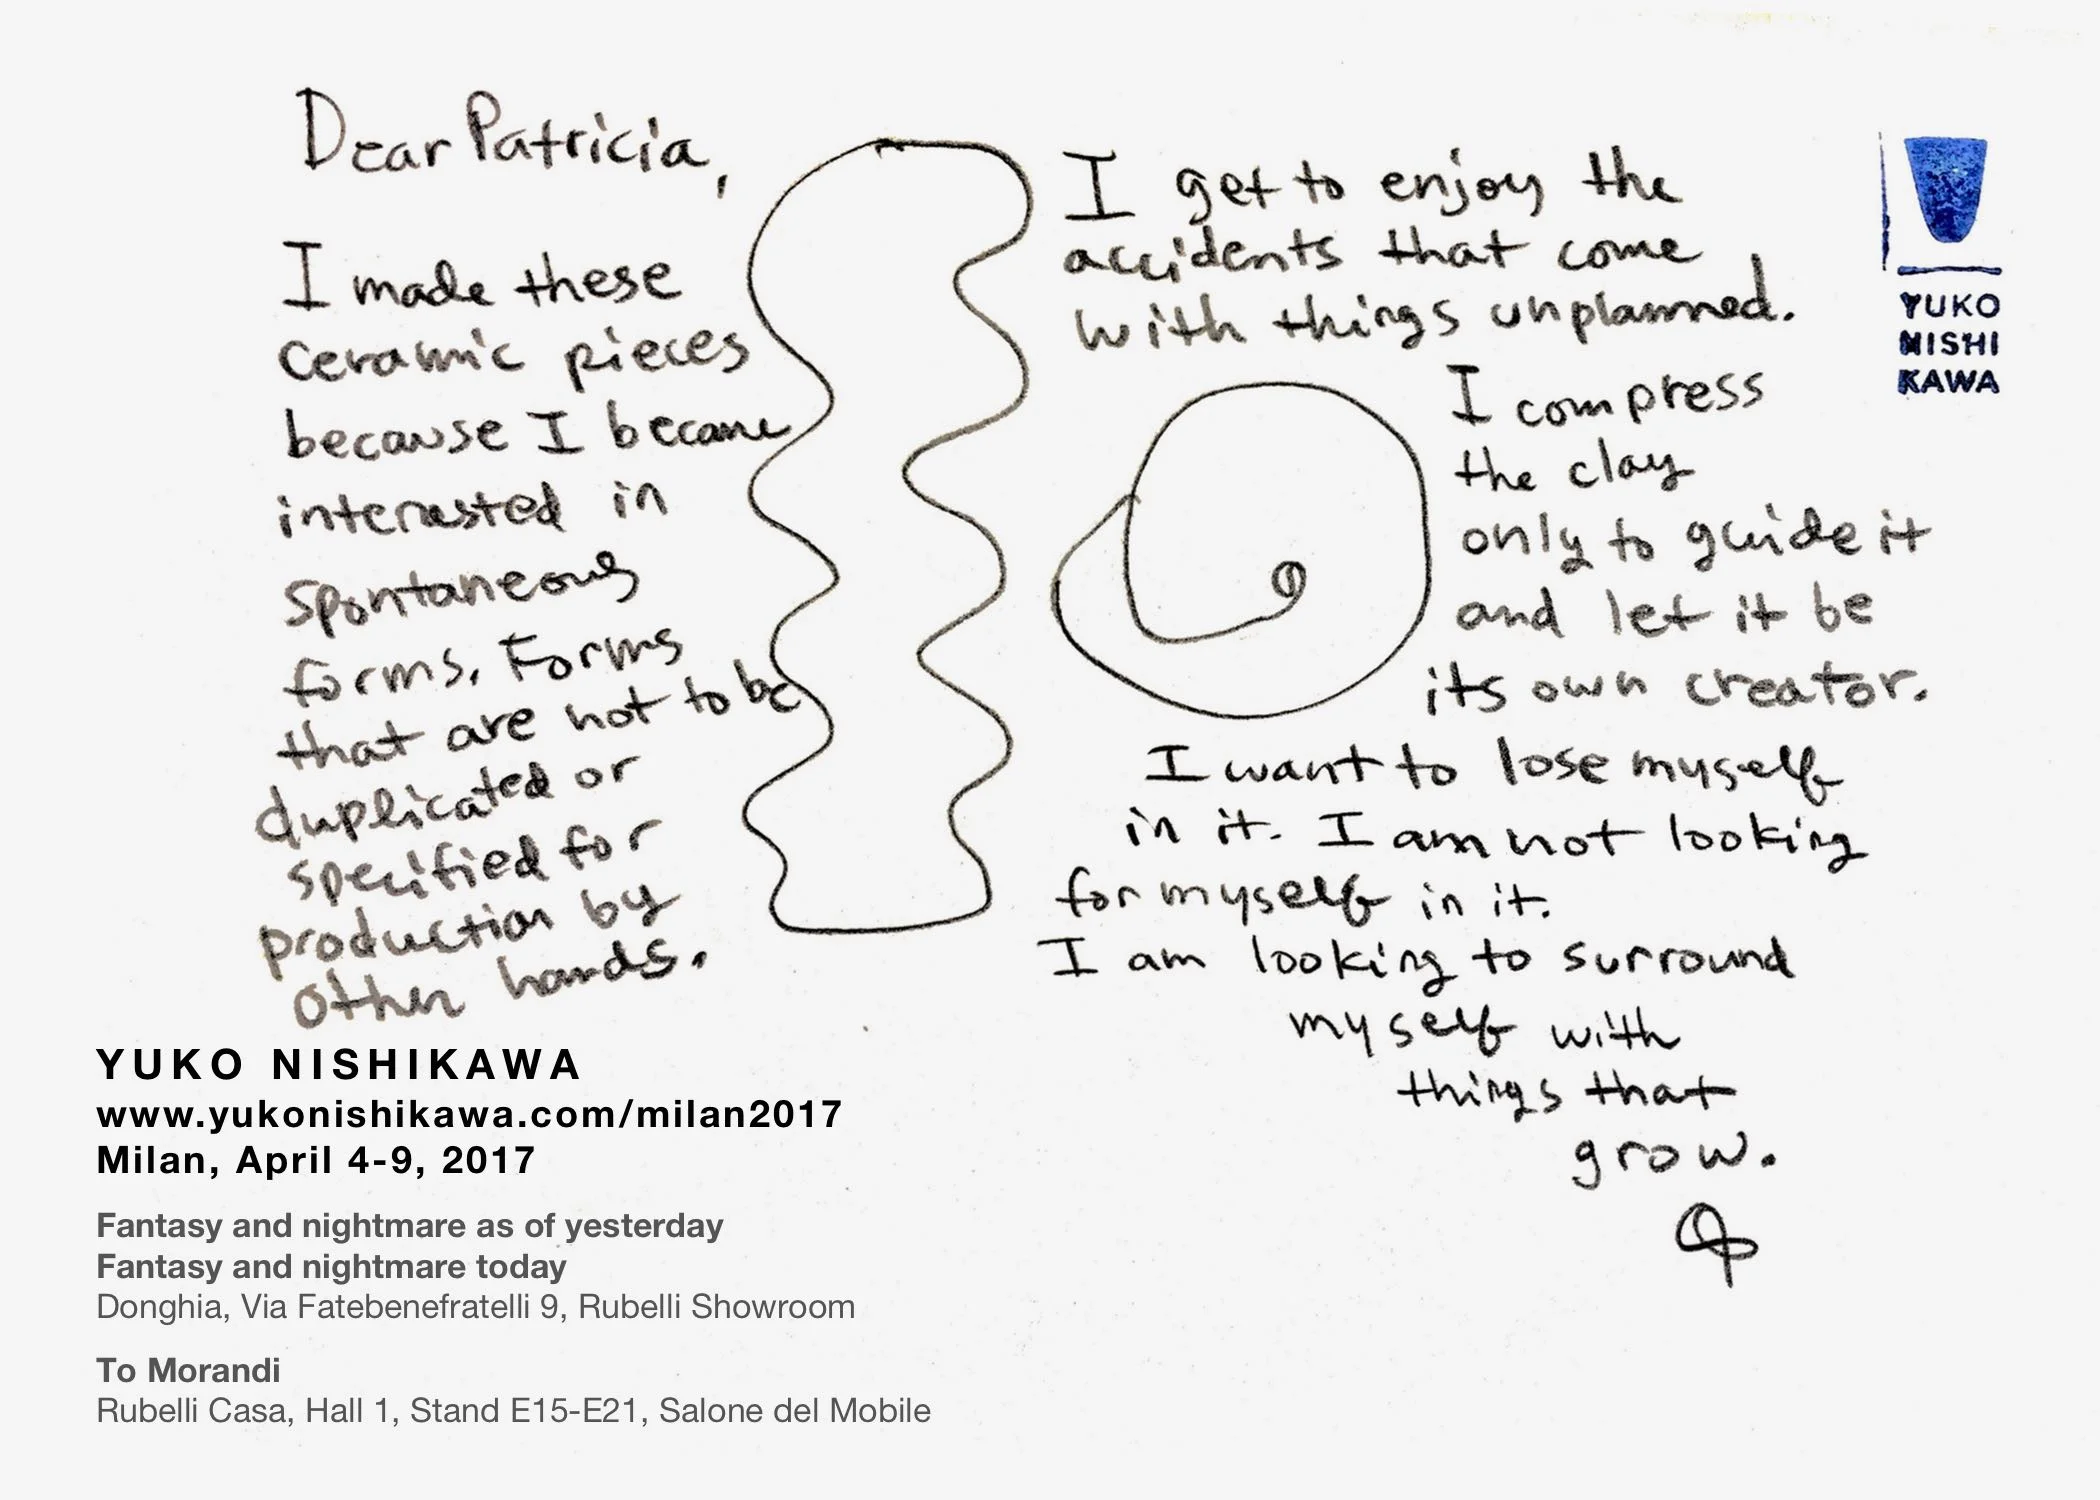 Dear Patricia,
I made these
ceramic pieces
because I became
interested in
spontaneous
forms. Forms
that are not to be
duplicated or
specified for
production by
other hands.
I get to enjoy the
accidents that come
with things unplanned.
I compress
the clay
only to guide it
and let it be
its own creator.
I want to lose myself
in it. I am not looking
for myself in it.
I am looking to surround
myself with
things that
grow.
YUKO
NISHI
KAWA
YUKO NISHIKAWA
www.yukonishikawa.com/milan2017
Milan, April 4-9, 2017
Fantasy and nightmare as of yesterday
Fantasy and nightmare today
Donghia, Via Fatebenefratelli 9, Rubelli Showroom
To Morandi
Rubelli Casa, Hall 1, Stand E15-E21, Salone del Mobile